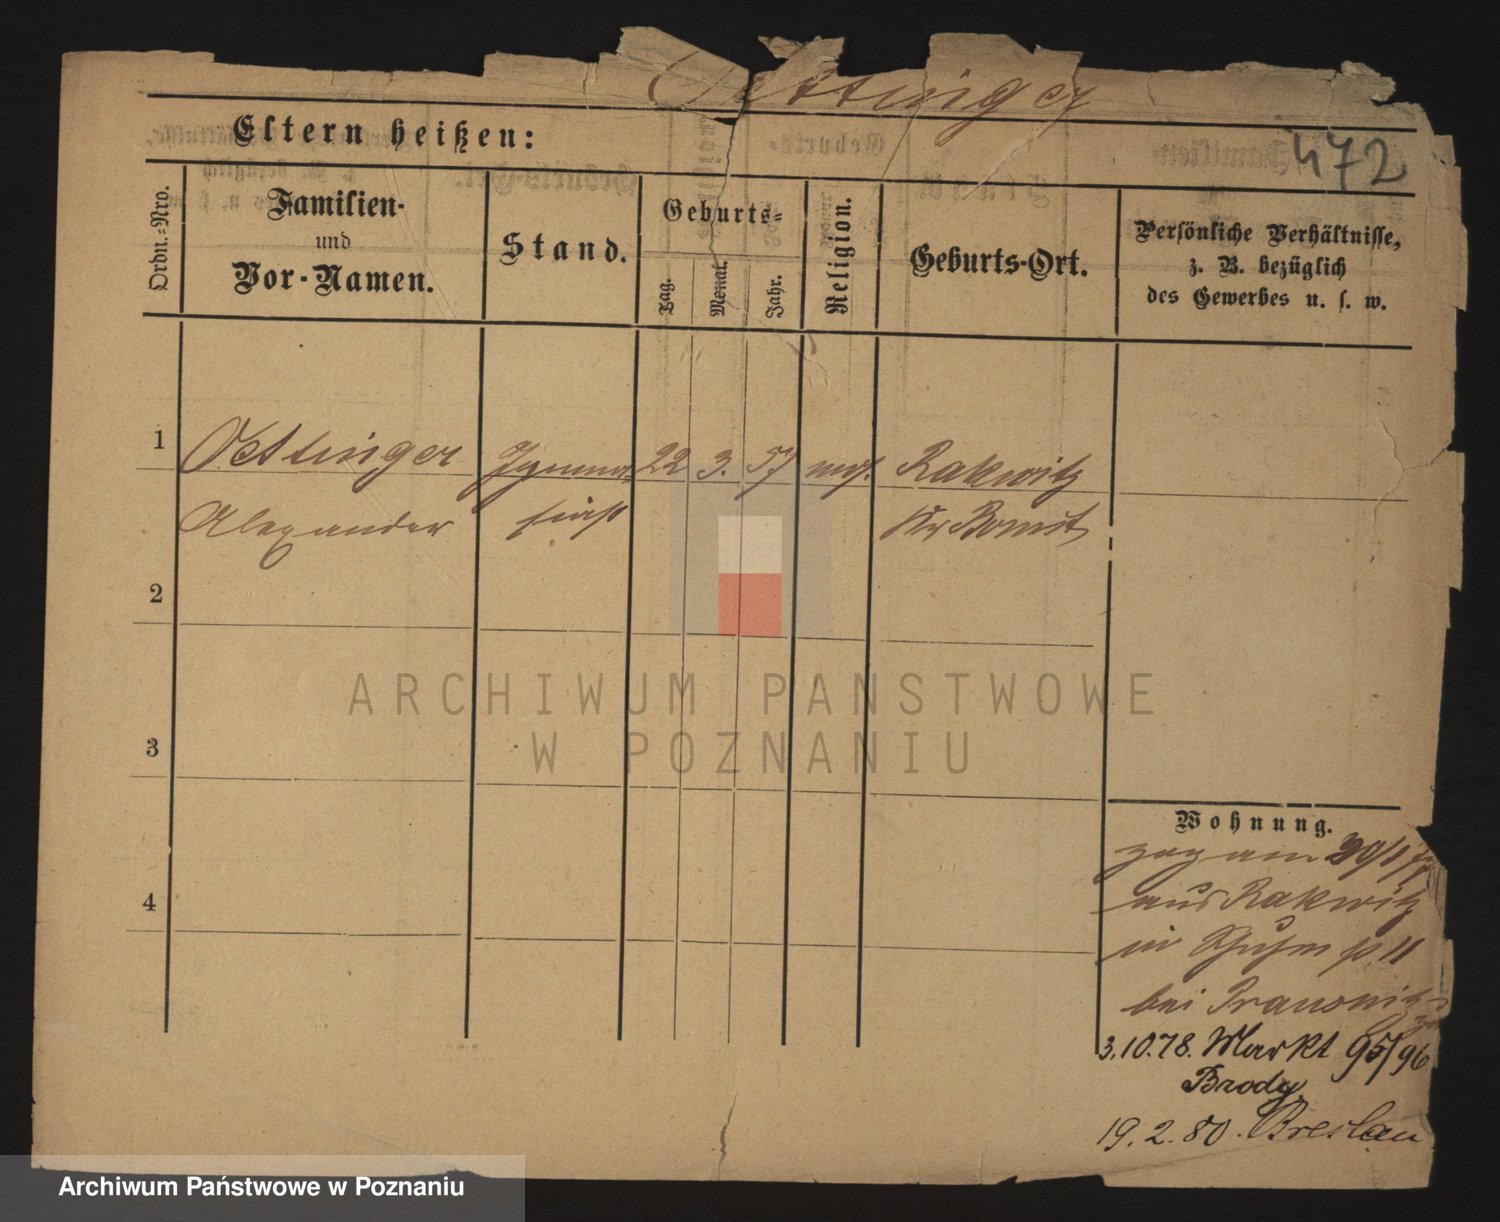 Oettinger
Eltern heißen:
472
Ordn.-Nro.
Familien-
und
Vor-Namen.
Stand.
Geburts-
Tag.
Monat.
Jahr.
Religion.
Geburts-Ort.
Persönliche Verhältnisse,
z. B. bezüglich
des Gewerbes u. s. w.
1 Oettinger Gymna- 22 3. 57 mos. Rakwitz
Alexander siast Kr Bomst
2
ARCHIWUM PAŃSTWOWE
W POZNANIU
3
4
Wohnung.
zog am
aus Rakwitz
in
bei
3.10.78. Markt 95/96
Brody
19.2.80. Breslau
Archiwum Państwowe w Poznaniu